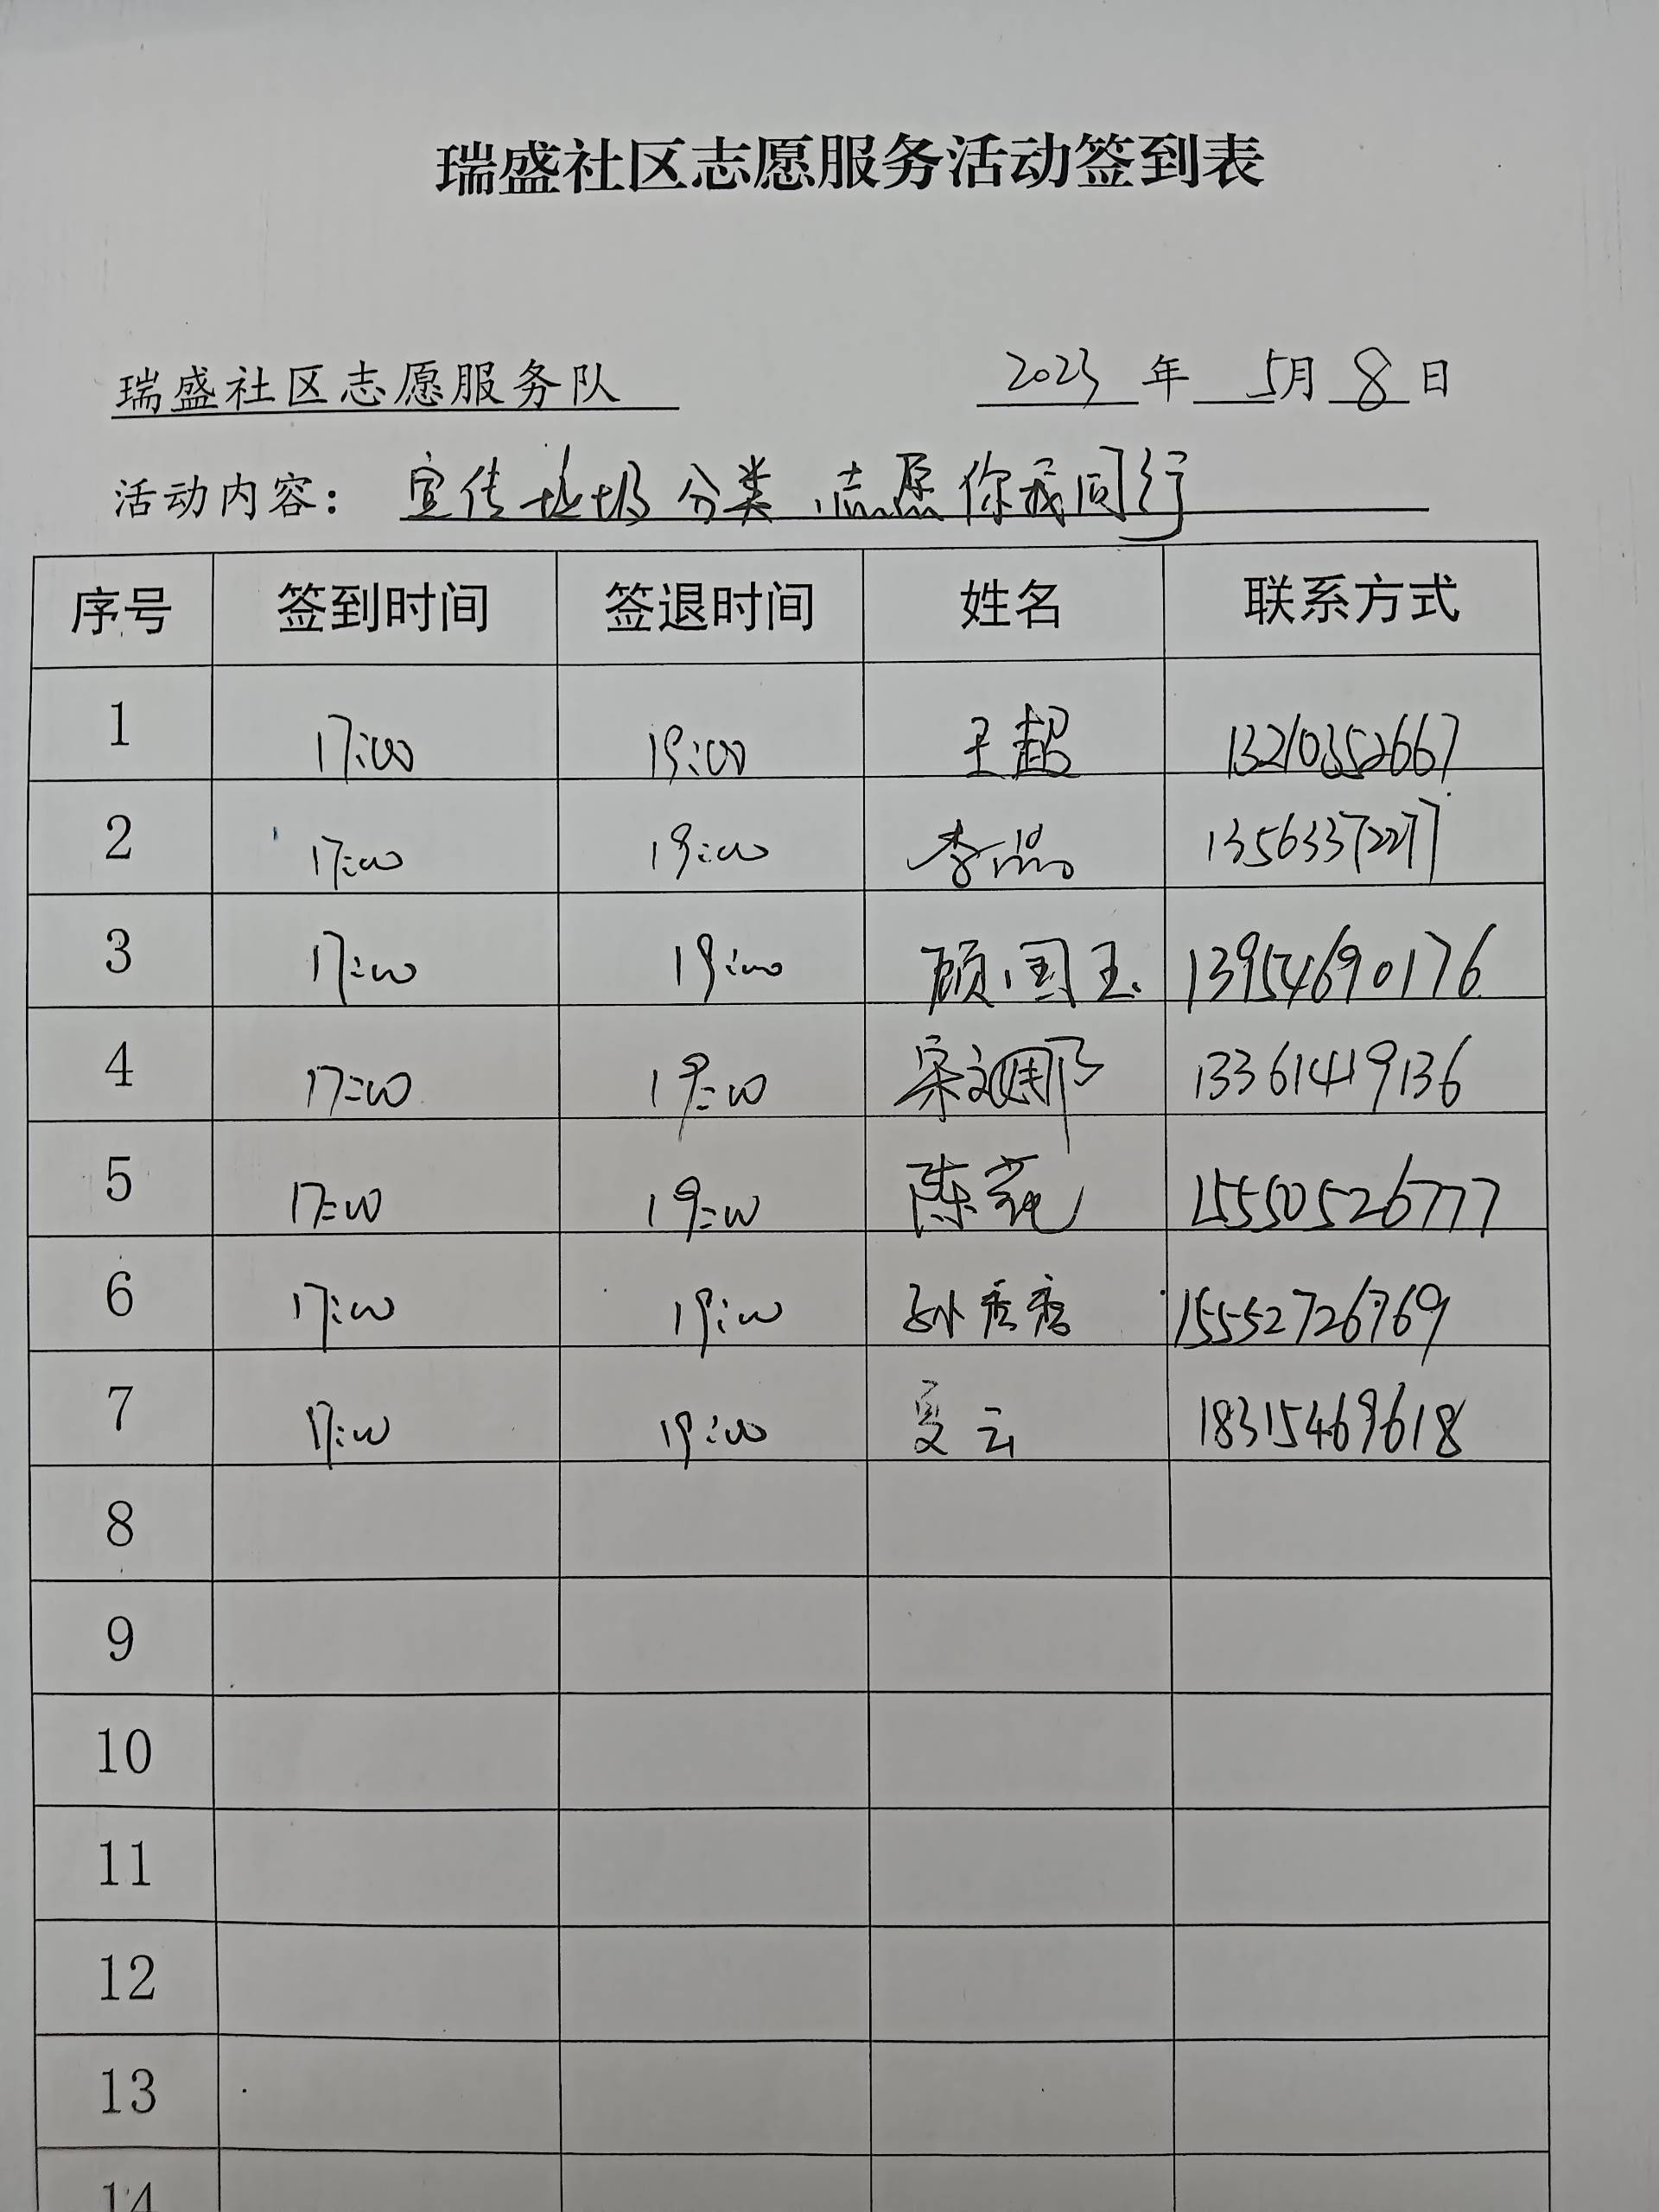 瑞盛社区志愿服务活动签到表
瑞盛社区志愿服务队 2023年 5月 8日
活动内容：宣传垃圾分类，志愿你我同行
序号 签到时间 签退时间 姓名 联系方式
1 17:00 19:00 王超 13210352667
2 17:00 19:00 李品 13563372277
3 17:00 19:00 顾国玉 13954690176
4 17:00 19:00 宋文娜 13361419136
5 17:00 19:00 陈苑 15550526777
6 17:00 19:00 孙秀秀 15552726769
7 17:00 19:00 夏云 18315469618
8
9
10
11
12
13
14